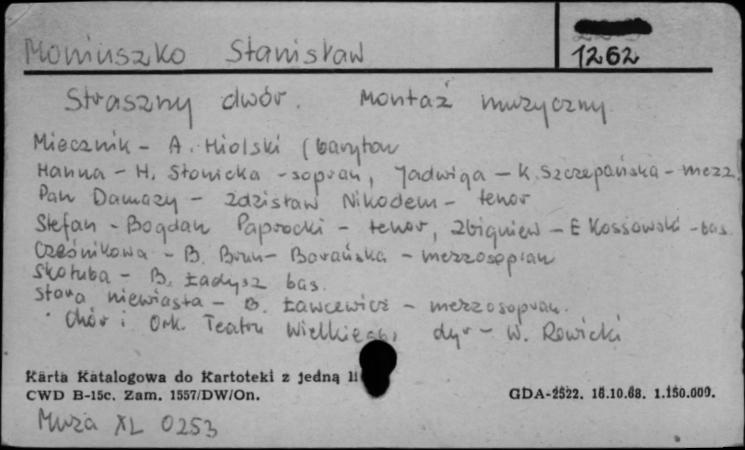 Moniuszko Stanisław
1262
Straszny dwór. Montaż muzyczny.
Miecznik - A. Hiolski (baryton
Hanna - H. Słonicka - sopran, Jadwiga - K. Szczepańska - mezz.
Pan Damazy - Zdzisław Nikodem - tenor
Stefan - Bogdan Paprocki - tenor, Zbigniew - E Kossowski - bas
Cześnikowa - B. Brun-Barańska - mezzosopran
Skołuba - B. Ładysz bas.
Stara niewiasta - B. Ławcewicz - mezzosopran.
Chór i Ork. Teatru Wielkiego, dyr - W. Rowicki
Karta Katalogowa do Kartoteki z jedną li
CWD B-15c. Zam. 1557/DW/On.
GDA-2522. 16.10.68. 1.150.000.
Muza XL 0253